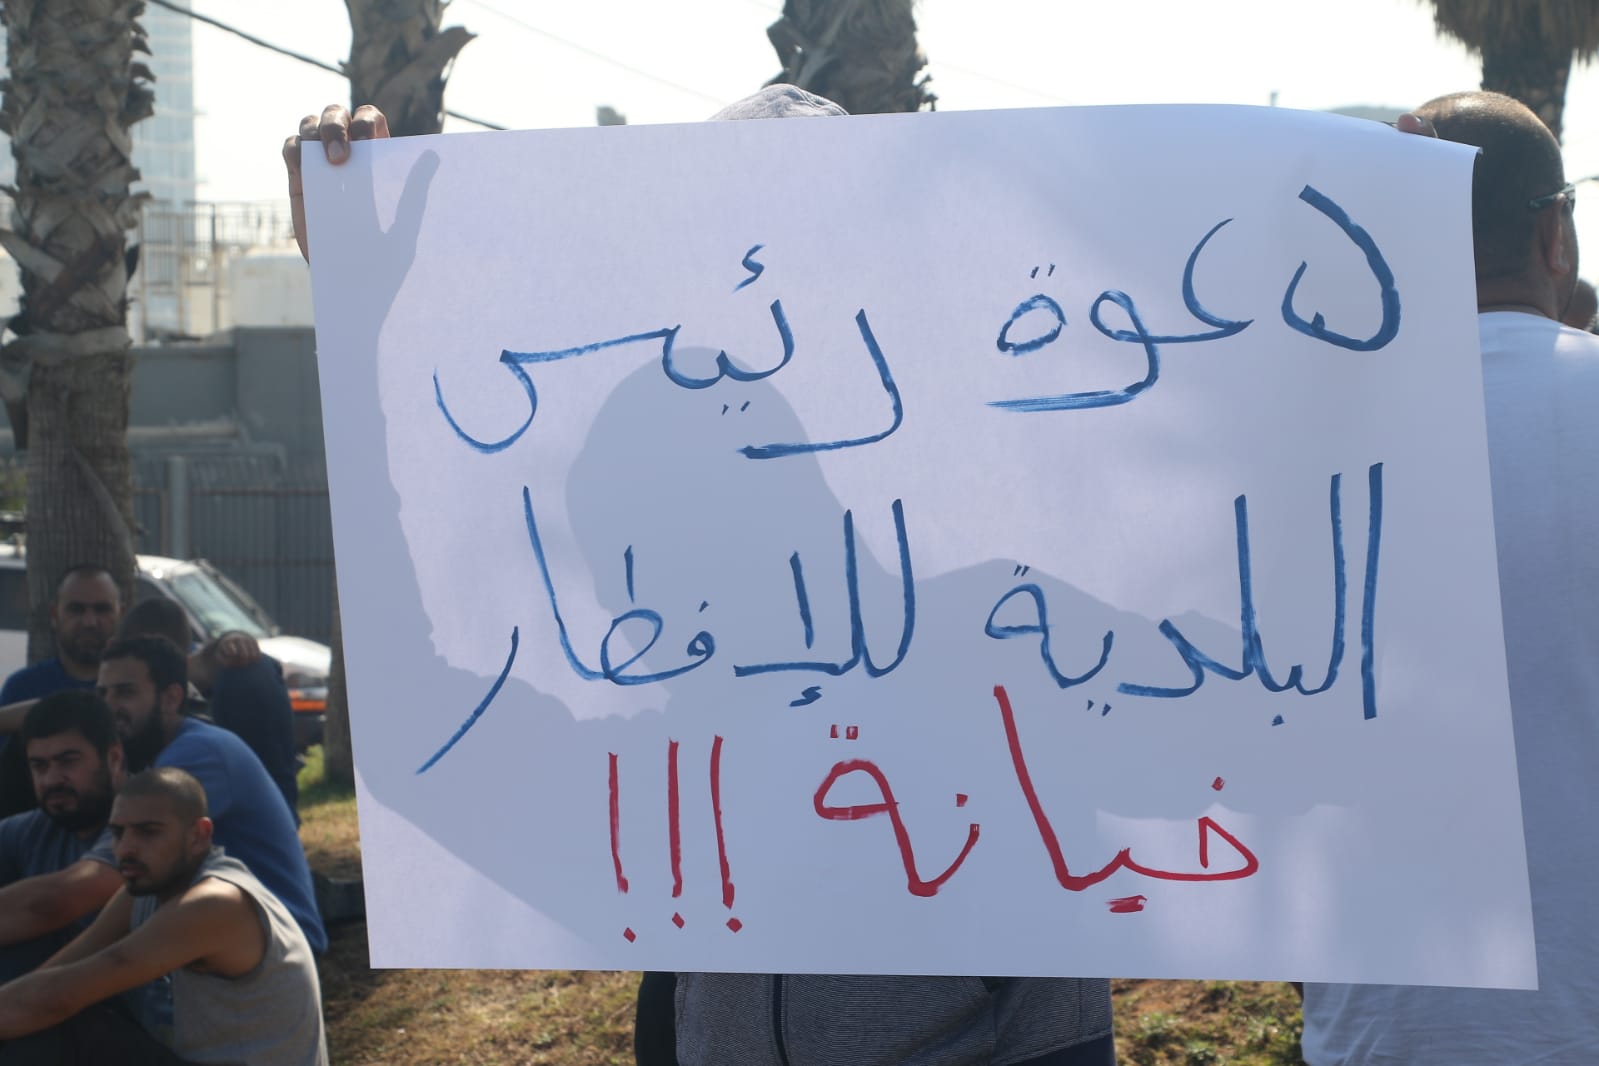 دعوة رئيس
البلدية للإفطار
خيانة !!!